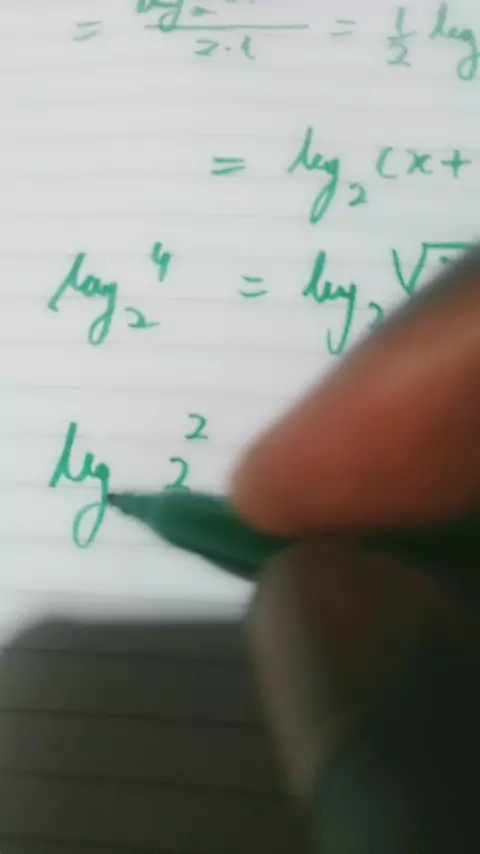 = log / 2·2 = 1/2 log
= log₂(x+
log₂4 = log₂√
log 2²